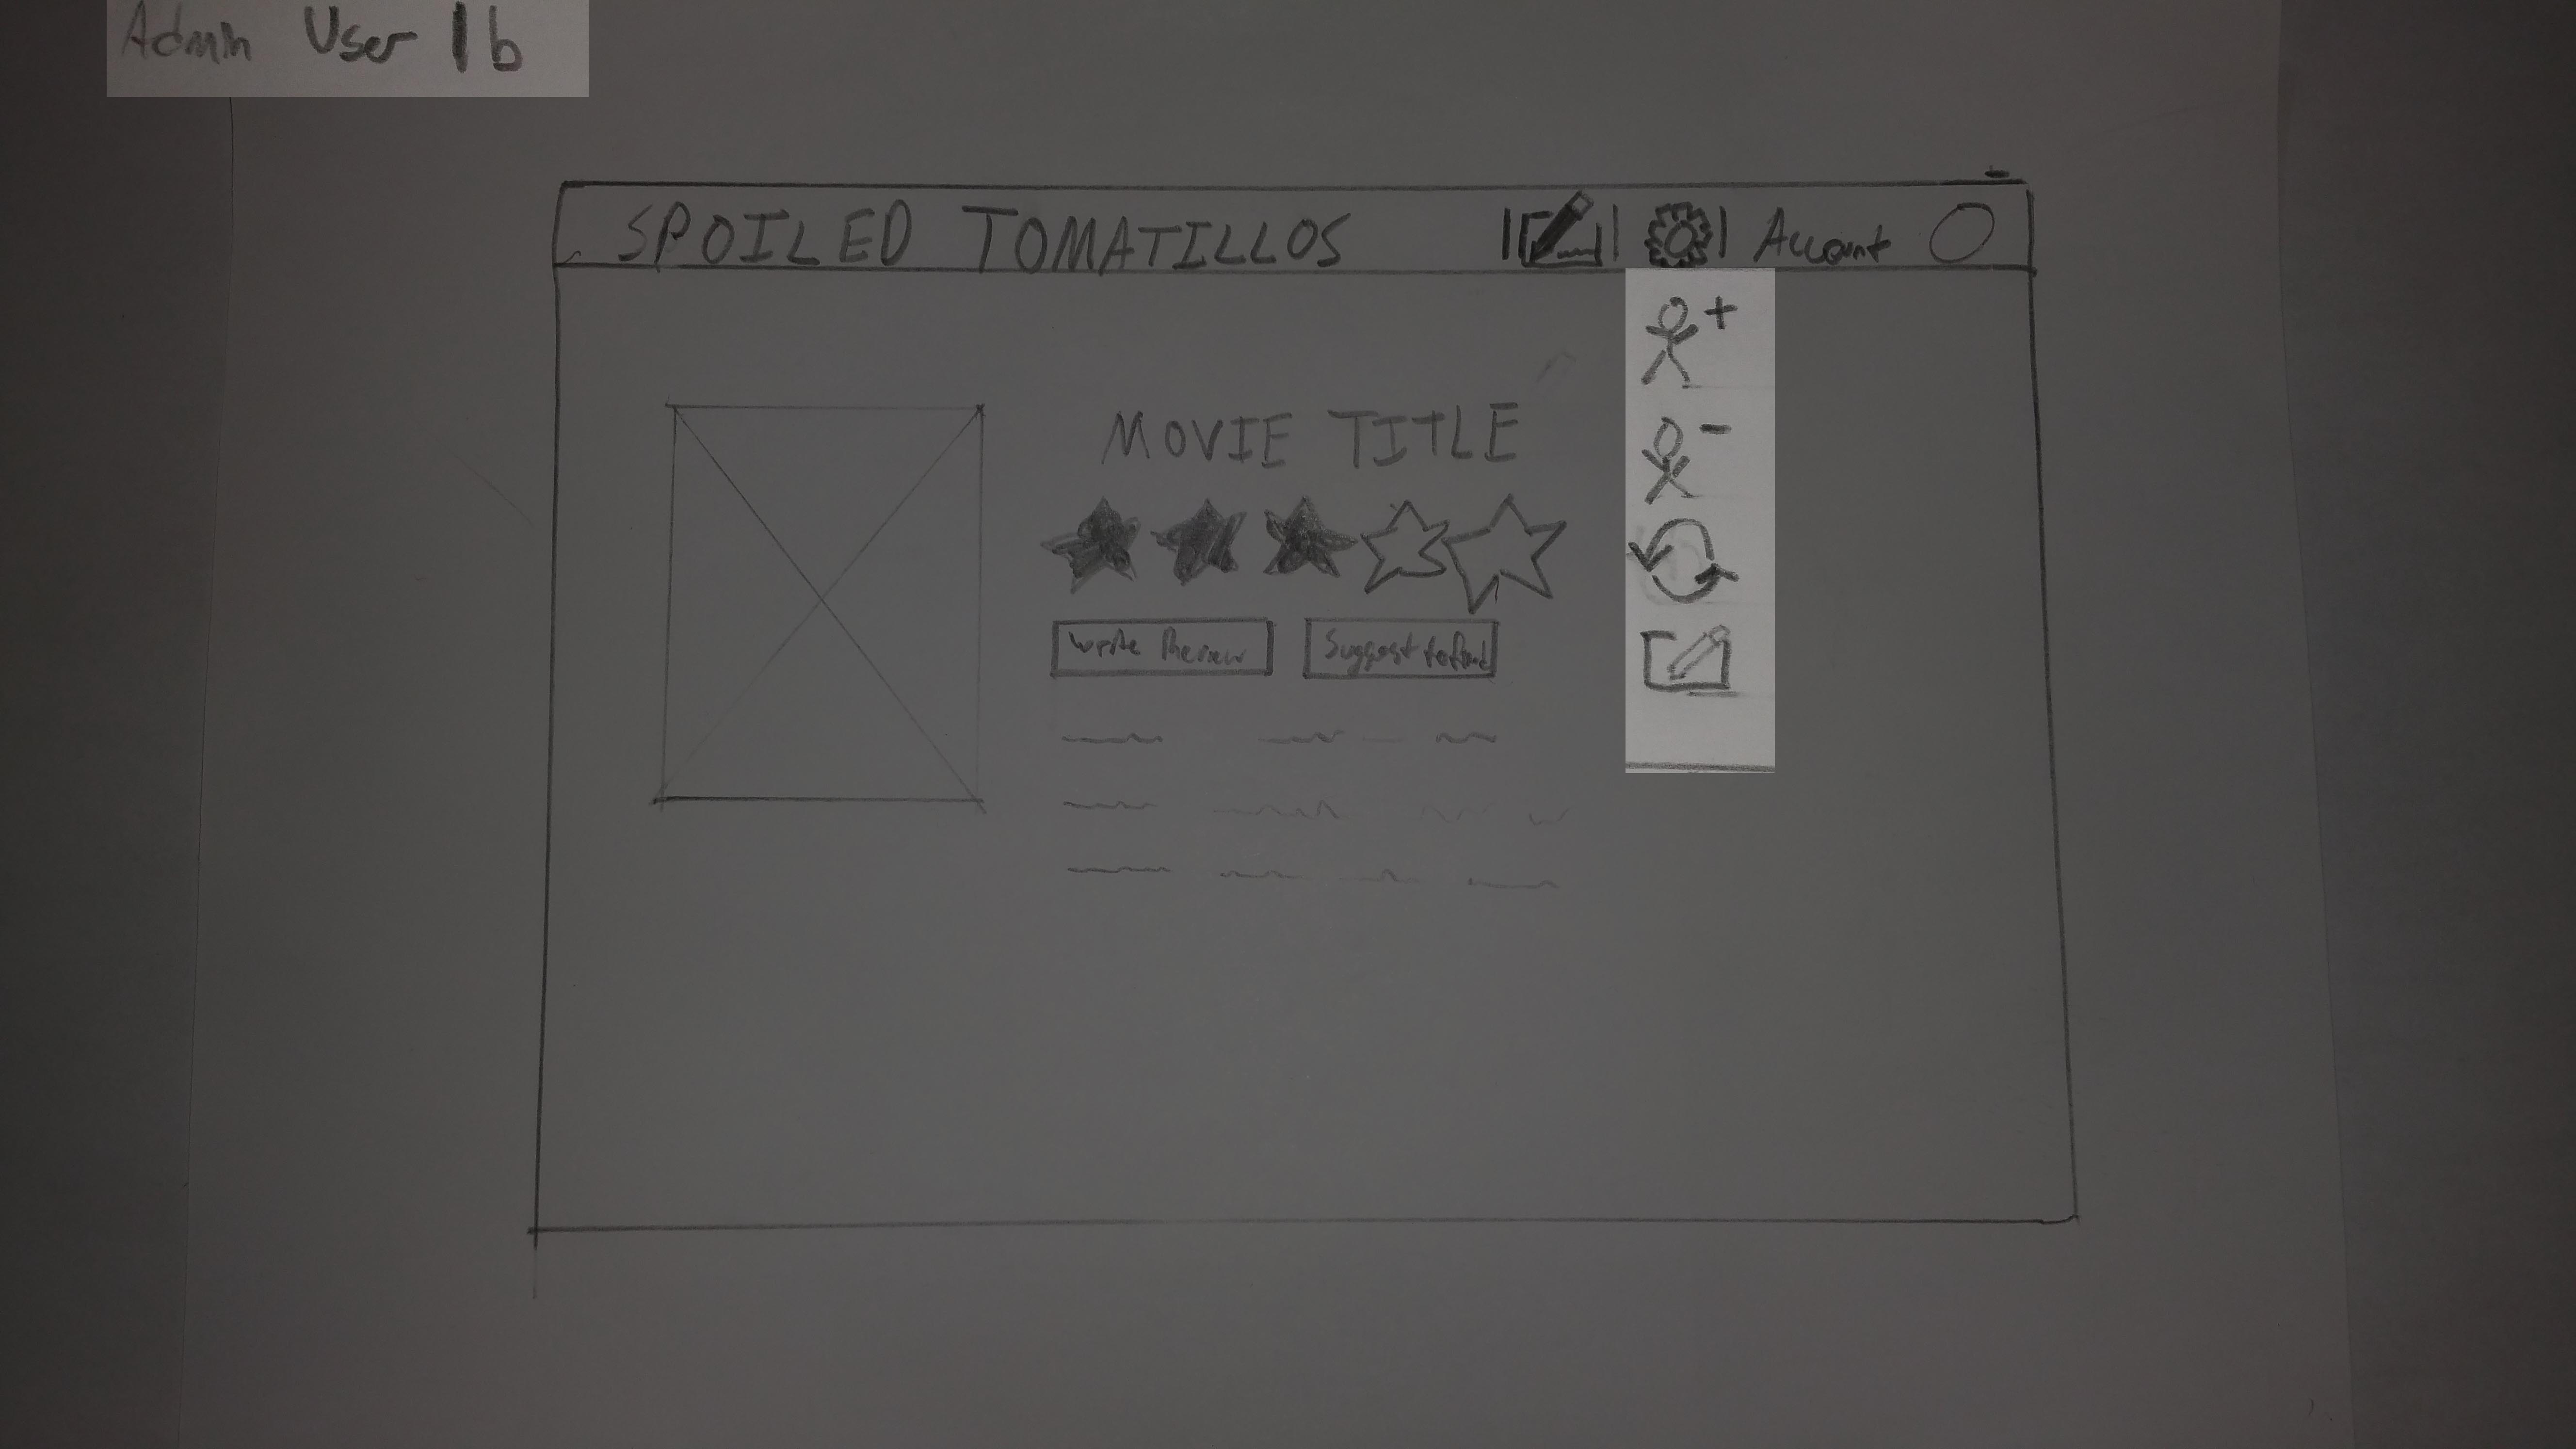 Admin User 1b
SPOILED TOMATILLOS
Account
+
MOVIE TITLE
-
Write Review
Suggest to